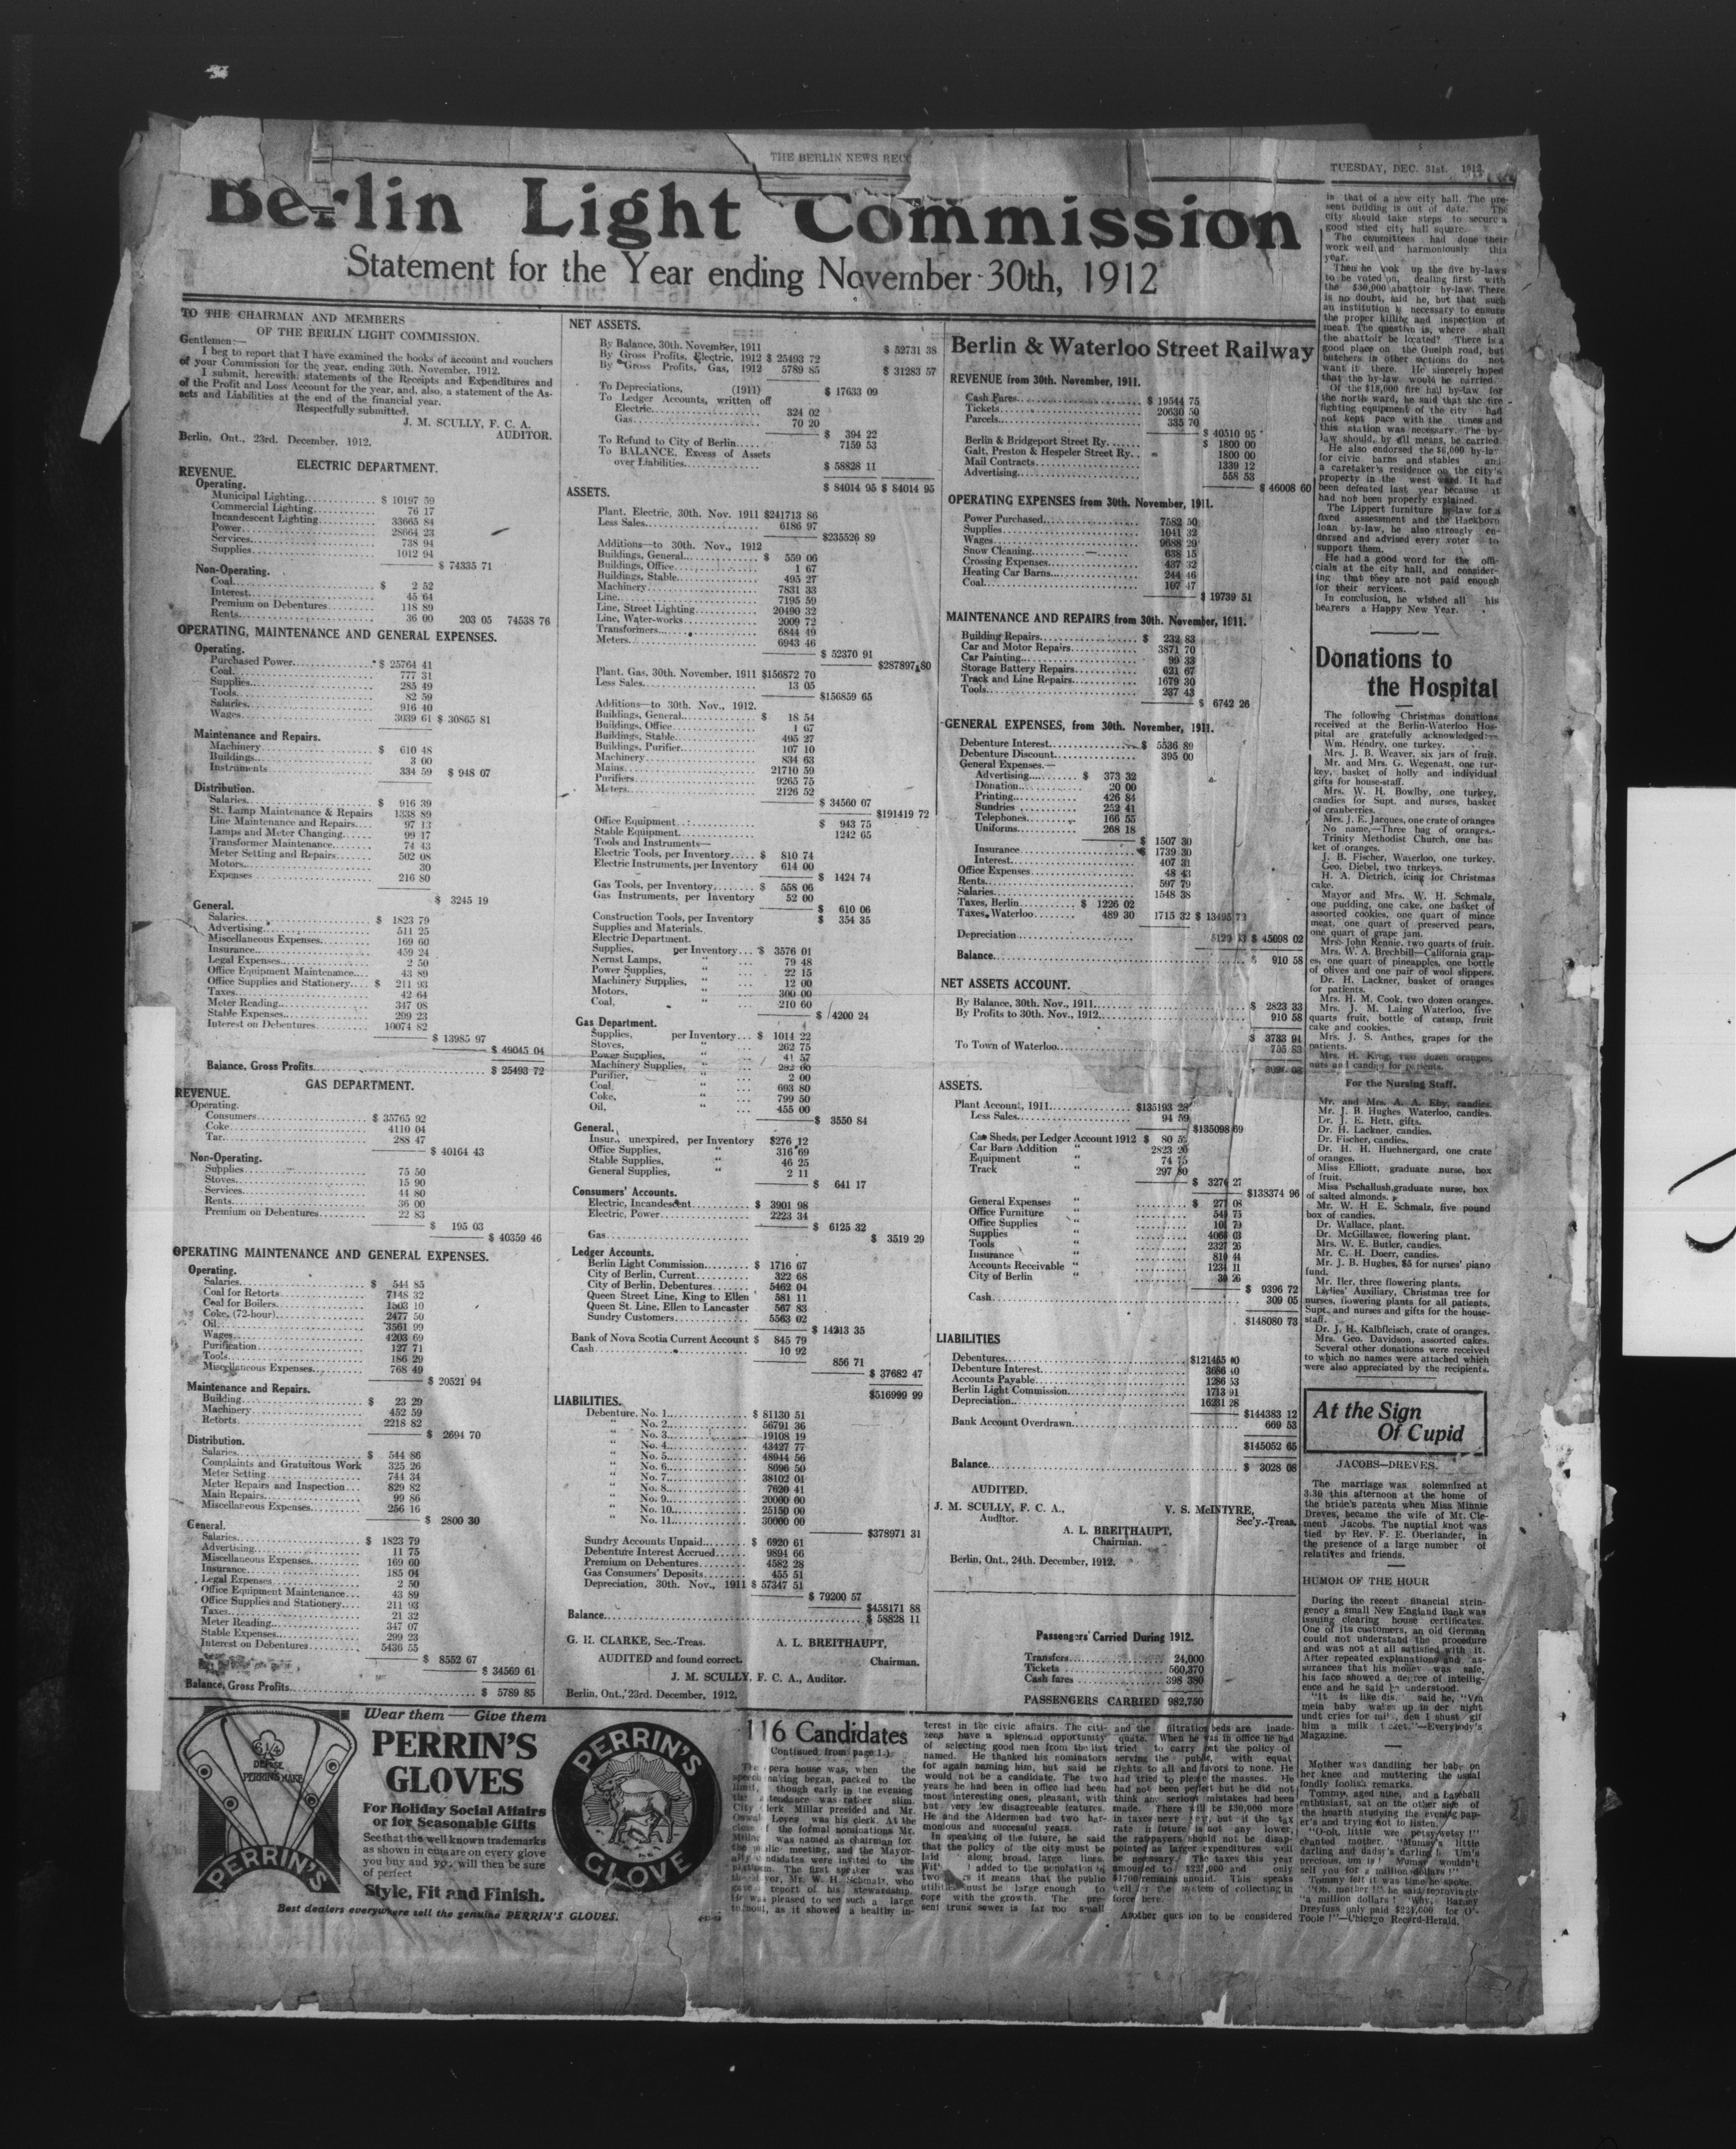 THE BERLIN NEWS REC
TUESDAY, DEC. 31st. 1912
Berlin Light Commission
Statement for the Year ending November 30th, 1912
TO THE CHAIRMAN AND MEMBERS
OF THE BERLIN LIGHT COMMISSION.
Gentlemen:—
I beg to report that I have examined the books of account and vouchers
of your Commission for the year, ending 30th. November, 1912.
I submit, herewith, statements of the Receipts and Expenditures and
of the Profit and Loss Account for the year, and, also, a statement of the As-
sets and Liabilities at the end of the financial year.
Respectfully submitted,
J. M. SCULLY, F. C. A.
AUDITOR.
Berlin, Ont., 23rd. December, 1912.
ELECTRIC DEPARTMENT.
REVENUE.
Operating.
Municipal Lighting............ $ 10197 59
Commercial Lighting............ 76 17
Incandescent Lighting............ 33665 84
Power............ 28664 23
Services............ 738 94
Supplies............ 1012 94
$ 74335 71
Non-Operating.
Coal............ $ 2 52
Interest............ 45 64
Premium on Debentures......... 118 89
Rents............ 36 00 203 05 74538 76
OPERATING, MAINTENANCE AND GENERAL EXPENSES.
Operating.
Purchased Power............ $ 25764 41
Coal............ 777 31
Supplies............ 285 49
Tools............ 82 59
Salaries............ 916 40
Wages............ 3039 61 $ 30865 81
Maintenance and Repairs.
Machinery............ $ 610 48
Buildings............ 3 00
Instruments............ 334 59 $ 948 07
Distribution.
Salaries............ $ 916 39
St. Lamp Maintenance & Repairs 1338 89
Line Maintenance and Repairs.... 97 13
Lamps and Meter Changing...... 99 17
Transformer Maintenance....... 74 43
Meter Setting and Repairs....... 502 08
Motors............ 30
Expenses............ 216 80
$ 3245 19
General.
Salaries............ $ 1823 79
Advertising............ 511 25
Miscellaneous Expenses......... 169 60
Insurance............ 459 24
Legal Expenses............ 2 50
Office Equipment Maintenance.... 43 89
Office Supplies and Stationery.... $ 211 93
Taxes............ 42 64
Meter Reading............ 347 08
Stable Expenses............ 299 23
Interest on Debentures......... 10074 82
$ 13985 97
$ 49045 04
Balance, Gross Profits............ $ 25493 72
GAS DEPARTMENT.
REVENUE.
Operating.
Consumers............ $ 35765 92
Coke............ 4110 04
Tar............ 288 47
$ 40164 43
Non-Operating.
Supplies............ 75 50
Stoves............ 15 90
Services............ 44 80
Rents............ 36 00
Premium on Debentures......... 22 83
$ 195 03
$ 40359 46
OPERATING MAINTENANCE AND GENERAL EXPENSES.
Operating.
Salaries............ $ 544 85
Coal for Retorts............ 7148 32
Coal for Boilers............ 1503 10
Coke, (72-hour)............ 2477 50
Oil............ 3561 99
Wages............ 4203 69
Purification............ 127 71
Tools............ 186 29
Miscellaneous Expenses......... 768 49
$ 20521 94
Maintenance and Repairs.
Building............ $ 23 29
Machinery............ 452 59
Retorts............ 2218 82
$ 2694 70
Distribution.
Salaries............ $ 544 86
Complaints and Gratuitous Work 325 26
Meter Setting............ 744 34
Meter Repairs and Inspection... 829 82
Main Repairs............ 99 86
Miscellaneous Expenses......... 256 16
$ 2800 30
General.
Salaries............ $ 1823 79
Advertising............ 11 75
Miscellaneous Expenses......... 169 60
Insurance............ 185 04
Legal Expenses............ 2 50
Office Equipment Maintenance.... 43 89
Office Supplies and Stationery.... 211 93
Taxes............ 21 32
Meter Reading............ 347 07
Stable Expenses............ 299 23
Interest on Debentures......... 5436 55
$ 8552 67
$ 34569 61
Balance, Gross Profits............ $ 5789 85
NET ASSETS.
By Balance, 30th. November, 1911 $ 52731 38
By Gross Profits, Electric, 1912 $ 25493 72
By Gross Profits, Gas, 1912 5789 85
$ 31283 57
To Depreciations, (1911) $ 17633 09
To Ledger Accounts, written off
Electric............ 324 02
Gas............ 70 20
$ 394 22
To Refund to City of Berlin..... 7159 53
To BALANCE, Excess of Assets
over Liabilities............ $ 58828 11
$ 84014 95 $ 84014 95
ASSETS.
Plant, Electric, 30th. Nov. 1911 $241713 86
Less Sales............ 6186 97
$235526 89
Additions—to 30th. Nov., 1912
Buildings, General............ $ 559 06
Buildings, Office............ 1 67
Buildings, Stable............ 495 27
Machinery............ 7831 33
Line............ 7195 59
Line, Street Lighting............ 20490 32
Line, Water-works............ 2009 72
Transformers............ 6844 49
Meters............ 6943 46
$ 52370 91
$287897 80
Plant, Gas, 30th. November, 1911 $156872 70
Less Sales............ 13 05
$156859 65
Additions—to 30th. Nov., 1912.
Buildings, General............ $ 18 54
Buildings, Office............ 1 67
Buildings, Stable............ 495 27
Buildings, Purifier............ 107 10
Machinery............ 834 63
Mains............ 21710 59
Purifiers............ 9265 75
Meters............ 2126 52
$ 34560 07
$191419 72
Office Equipment............ $ 943 75
Stable Equipment............ 1242 65
Tools and Instruments—
Electric Tools, per Inventory..... $ 810 74
Electric Instruments, per Inventory 614 00
$ 1424 74
Gas Tools, per Inventory........ $ 558 06
Gas Instruments, per Inventory 52 00
$ 610 06
Construction Tools, per Inventory $ 354 35
Supplies and Materials.
Electric Department.
Supplies, per Inventory... $ 3576 01
Nernst Lamps, " ... 79 48
Power Supplies, " ... 22 15
Machinery Supplies, " ... 12 00
Motors, " ... 300 00
Coal, " ... 210 60
$ 4200 24
Gas Department.
Supplies, per Inventory... $ 1014 22
Stoves, " ... 262 75
Power Supplies, " ... 41 57
Machinery Supplies, " ... 282 00
Purifier, " ... 2 00
Coal, " ... 693 80
Coke, " ... 799 50
Oil, " ... 455 00
$ 3550 84
General.
Insur., unexpired, per Inventory $276 12
Office Supplies, " 316 69
Stable Supplies, " 46 25
General Supplies, " 2 11
$ 641 17
Consumers' Accounts.
Electric, Incandescent......... $ 3901 98
Electric, Power............ 2223 34
$ 6125 32
Gas............ $ 3519 29
Ledger Accounts.
Berlin Light Commission........ $ 1716 67
City of Berlin, Current......... 322 68
City of Berlin, Debentures...... 5462 04
Queen Street Line, King to Ellen 581 11
Queen St. Line, Ellen to Lancaster 567 83
Sundry Customers............ 5563 02
$ 14213 35
Bank of Nova Scotia Current Account $ 845 79
Cash............ 10 92
856 71
$ 37682 47
$516999 99
LIABILITIES.
Debenture, No. 1............ $ 81130 51
" No. 2............ 56791 36
" No. 3............ 19108 19
" No. 4............ 43427 77
" No. 5............ 48944 56
" No. 6............ 8696 50
" No. 7............ 38102 01
" No. 8............ 7620 41
" No. 9............ 20000 00
" No. 10............ 25150 00
" No. 11............ 30000 00
$378971 31
Sundry Accounts Unpaid........ $ 6920 61
Debenture Interest Accrued...... 9894 66
Premium on Debentures......... 4582 28
Gas Consumers' Deposits........ 455 51
Depreciation, 30th. Nov., 1911 $ 57347 51
$ 79200 57
$458171 88
Balance............ $ 58828 11
G. H. CLARKE, Sec.-Treas.
A. L. BREITHAUPT,
Chairman.
AUDITED and found correct.
J. M. SCULLY, F. C. A., Auditor.
Berlin, Ont., 23rd. December, 1912.
Berlin & Waterloo Street Railway
REVENUE from 30th. November, 1911.
Cash Fares............ $ 19544 75
Tickets............ 20630 50
Parcels............ 335 70
$ 40510 95
Berlin & Bridgeport Street Ry....... $ 1800 00
Galt, Preston & Hespeler Street Ry... 1800 00
Mail Contracts............ 1339 12
Advertising............ 558 53
$ 46008 60
OPERATING EXPENSES from 30th. November, 1911.
Power Purchased............ 7582 50
Supplies............ 1041 32
Wages............ 9688 29
Snow Cleaning............ 638 15
Crossing Expenses............ 437 32
Heating Car Barns............ 244 46
Coal............ 107 47
$ 19739 51
MAINTENANCE AND REPAIRS from 30th. November, 1911.
Building Repairs............ $ 232 83
Car and Motor Repairs............ 3871 70
Car Painting............ 99 33
Storage Battery Repairs............ 621 67
Track and Line Repairs............ 1679 30
Tools............ 237 43
$ 6742 26
GENERAL EXPENSES, from 30th. November, 1911.
Debenture Interest............ $ 5536 89
Debenture Discount............ 395 00
General Expenses.—
Advertising............ $ 373 32
Donation............ 20 00
Printing............ 426 84
Sundries............ 252 41
Telephones............ 166 55
Uniforms............ 268 18
$ 1507 30
Insurance............ 1739 30
Interest............ 407 31
Office Expenses............ 48 43
Rents............ 597 79
Salaries............ 1548 38
Taxes, Berlin......... $ 1226 02
Taxes, Waterloo......... 489 30 1715 32 $ 13495 72
Depreciation............ $ 45098 02
Balance............ $ 910 58
NET ASSETS ACCOUNT.
By Balance, 30th. Nov., 1911............ $ 2823 33
By Profits to 30th. Nov., 1912............ 910 58
$ 3733 91
To Town of Waterloo............ 705 83
ASSETS.
Plant Account, 1911............ $135193 28
Less Sales............ 94 59
$135098 69
Car Sheds, per Ledger Account 1912 $ 80 52
Car Barn Addition " 2823 20
Equipment " 74 75
Track " 297 80
$ 3276 27
$138374 96
General Expenses " $ 271 08
Office Furniture " 540 75
Office Supplies " 101 79
Supplies " 4060 03
Tools " 2327 26
Insurance " 810 44
Accounts Receivable " 1234 11
City of Berlin " 30 26
$ 9396 72
Cash............ 309 05
$148080 73
LIABILITIES
Debentures............ $121455 00
Debenture Interest............ 3686 40
Accounts Payable............ 1286 53
Berlin Light Commission............ 1713 91
Depreciation............ 16231 28
$144383 12
Bank Account Overdrawn............ 669 53
$145052 65
Balance............ $ 3028 08
AUDITED.
J. M. SCULLY, F. C. A.,
Auditor.
V. S. McINTYRE,
Sec'y.-Treas.
A. L. BREITHAUPT,
Chairman.
Berlin, Ont., 24th. December, 1912.
Passengers' Carried During 1912.
Transfers............ 24,000
Tickets............ 560,370
Cash fares............ 398 380
PASSENGERS CARRIED 982,750
is that of a new city hall. The pre-
sent building is out of date. The
city should take steps to secure a
good sized city hall square.
The committees had done their
work well and harmoniously this
year.
Then he took up the five by-laws
to be voted on, dealing first with
the $30,000 abattoir by-law. There
is no doubt, said he, but that such
an institution is necessary to ensure
the proper killing and inspection of
meat. The question is, where shall
the abattoir be located? There is a
good place on the Guelph road, but
butchers in other sections do not
want it there. He sincerely hoped
that the by-law would be carried.
Of the $18,000 fire hall by-law for
the north ward, he said that the fire
fighting equipment of the city had
not kept pace with the times and
this station was necessary. The by-
law should, by all means, be carried.
He also endorsed the $6,000 by-law
for civic barns and stables and
a caretaker's residence on the city's
property in the west ward. It had
been defeated last year because it
had not been properly explained.
The Lippert furniture by-law for a
fixed assessment and the Hackboro
loan by-law, he also strongly en-
dorsed and advised every voter to
support them.
He had a good word for the offi-
cials at the city hall, and consider-
ing that they are not paid enough
for their services.
In conclusion, he wished all his
hearers a Happy New Year.
Donations to
the Hospital
The following Christmas donations
received at the Berlin-Waterloo Hos-
pital are gratefully acknowledged:—
Wm. Hendry, one turkey.
Mrs. J. B. Weaver, six jars of fruit.
Mr. and Mrs. G. Wegenast, one tur-
key, basket of holly and individual
gifts for house-staff.
Mrs. W. H. Bowlby, one turkey,
candies for Supt. and nurses, basket
of cranberries.
Mrs. J. E. Jacques, one crate of oranges
No name,—Three bag of oranges.
Trinity Methodist Church, one bas
ket of oranges.
J. B. Fischer, Waterloo, one turkey.
Geo. Diebel, two turkeys.
H. A. Dietrich, icing for Christmas
cake.
Mayor and Mrs. W. H. Schmalz,
one pudding, one cake, one basket of
assorted cookies, one quart of mince
meat, one quart of preserved pears,
one quart of grape jam.
Mrs. John Rennie, two quarts of fruit.
Mrs. W. A. Brechbill—California grap-
es, one quart of pineapples, one bottle
of olives and one pair of wool slippers.
Dr. H. Lackner, basket of oranges
for patients.
Mrs. H. M. Cook, two dozen oranges.
Mrs. J. M. Laing Waterloo, five
quarts fruit, bottle of catsup, fruit
cake and cookies.
Mrs. J. S. Anthes, grapes for the
patients.
Mrs. H. Krug, two dozen oranges,
nuts and candies for patients.
For the Nursing Staff.
Mr. and Mrs. A. A. Eby, candies.
Mr. J. B. Hughes, Waterloo, candies.
Dr. J. E. Hett, gifts.
Dr. H. Lackner, candies.
Dr. Fischer, candies.
Dr. H. H. Huehnergard, one crate
of oranges.
Miss Elliott, graduate nurse, box
of fruit.
Miss Pschallush,graduate nurse, box
of salted almonds.
Mr. W. H E. Schmalz, five pound
box of candies.
Dr. Wallace, plant.
Dr. McGillawee, flowering plant.
Mrs. W. E. Butler, candies.
Mr. C. H. Doerr, candies.
Mr. J. B. Hughes, $5 for nurses' piano
fund.
Mr. Iler, three flowering plants.
Ladies' Auxiliary, Christmas tree for
nurses, flowering plants for all patients,
Supt. and nurses and gifts for the house-
staff.
Dr. J. H. Kalbfleisch, crate of oranges.
Mrs. Geo. Davidson, assorted cakes.
Several other donations were received
to which no names were attached which
were also appreciated by the recipients.
At the Sign
Of Cupid
JACOBS—DREVES.
The marriage was solemnized at
3.30 this afternoon at the home of
the bride's parents when Miss Minnie
Dreves, became the wife of Mr. Cle-
ment Jacobs. The nuptial knot was
tied by Rev. F. E. Oberlander, in
the presence of a large number of
relatives and friends.
HUMOR OF THE HOUR
During the recent financial strin-
gency a small New England Bank was
issuing clearing house certificates.
One of its customers, an old German
could not understand the procedure
and was not at all satisfied with it.
After repeated explanations and as-
surances that his money was safe,
his face showed a degree of intellig-
ence and he said he understood.
"It is like dis," said he, "Ven
mein baby wakes up in der night
undt cries for milk, den I shust gif
him a milk ticket."—Everybody's
Magazine.
Mother was dandling her baby on
her knee and muttering the usual
fondly foolish remarks.
Tommy, aged nine, and a baseball
enthusiast, sat on the other side of
the hearth studying the evening pap-
er's and trying not to listen.
"O-oh, little wee petsy-wetsy!"
chanted mother. "Mumsy's little
darling and dadsy's darling! Um's
precious, um is! Mumsy wouldn't
sell you for a million dollars!"
Tommy felt it was time he spoke.
"Oh, mother!" he said reprovingly
"a million dollars! Why, Barney
Dreyfuss only paid $22,000 for O'-
Toole!"—Chicago Record-Herald.
Wear them — Give them
PERRIN'S
GLOVES
For Holiday Social Affairs
or for Seasonable Gifts
See that the well known trademarks
as shown in cuts are on every glove
you buy and you will then be sure
of perfect
Style, Fit and Finish.
Best dealers everywhere sell the genuine PERRIN'S GLOVES.
6¼
DEPOSE
PERRIN'S MAKE
PERRIN'S
PERRIN'S
GLOVE
116 Candidates
(Continued from page 1.)
The opera house was, when the
speech making began, packed to the
limit, though early in the evening
the attendance was rather slim.
City Clerk Millar presided and Mr.
Oswald Leyes was his clerk. At the
close of the formal nominations Mr.
Millar was named as chairman for
the public meeting, and the Mayor-
alty candidates were invited to the
platform. The first speaker was
the Mayor, Mr. W. H. Schmalz, who
gave a report of his stewardship.
He was pleased to see such a large
turnout, as it showed a healthy in-
terest in the civic affairs. The citi-
zens have a splendid opportunity
of selecting good men from the list
named. He thanked his nominators
for again naming him, but said he
would not be a candidate. The two
years he had been in office had been
most interesting ones, pleasant, with
but very few disagreeable features.
He and the Aldermen had two har-
monious and successful years.
In speaking of the future, he said
that the policy of the city must be
laid along broad, large lines.
With added to the population in
two years it means that the public
utilities must be large enough to
cope with the growth. The pre-
sent trunk sewer is far too small
and the filtration beds are inade-
quate. When he was in office he had
tried to carry out the policy of
serving the public, with equal
rights to all and favors to none. He
had tried to please the masses. He
had not been perfect but he did not
think any serious mistakes had been
made. There will be $30,000 more
in taxes next year, but if the tax
rate in future is not any lower,
the ratepayers should not be disap-
pointed as larger expenditures will
be necessary. The taxes this year
amounted to $221,000 and only
$1700 remains unpaid. This speaks
well for the system of collecting in
force here.
Another question to be considered